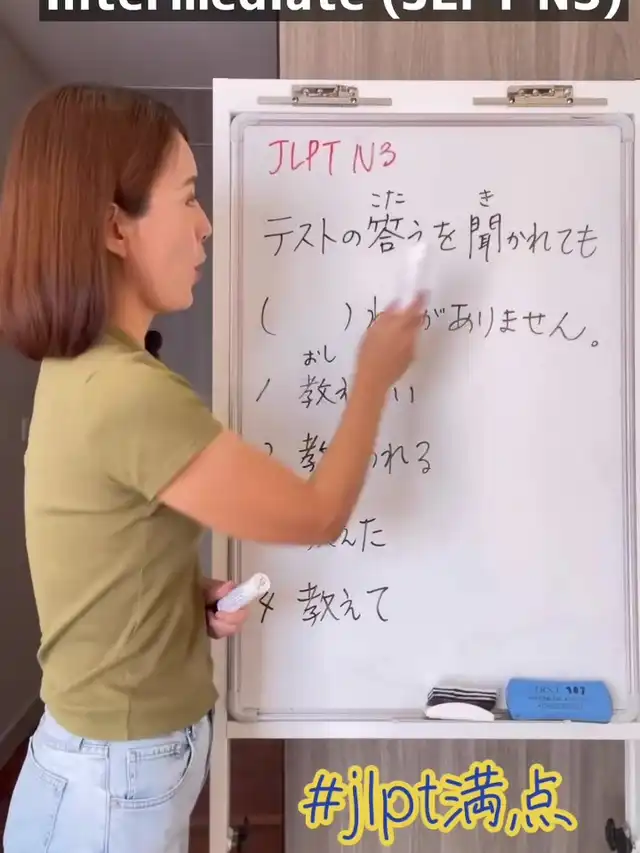 Intermediate (JLPT N3)
JLPT N3
こた き
テストの答 を聞かれても
( ) がありません。
おし
1 教 い
2 教 れる
えた
4 教えて
#jlpt満点